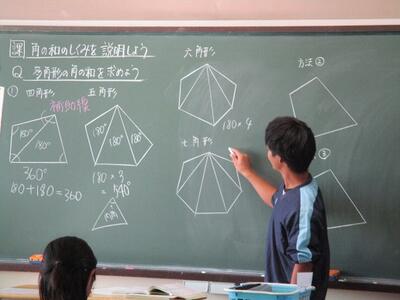 課 角の和のしくみを説明しよう
Q 多角形の角の和を求めよう
① 四角形
補助線
180°
180°
360°
180+180=360
五角形
180°
180°
180°
180×3
=540°
内角
六角形
180×4
七角形
方法②
③